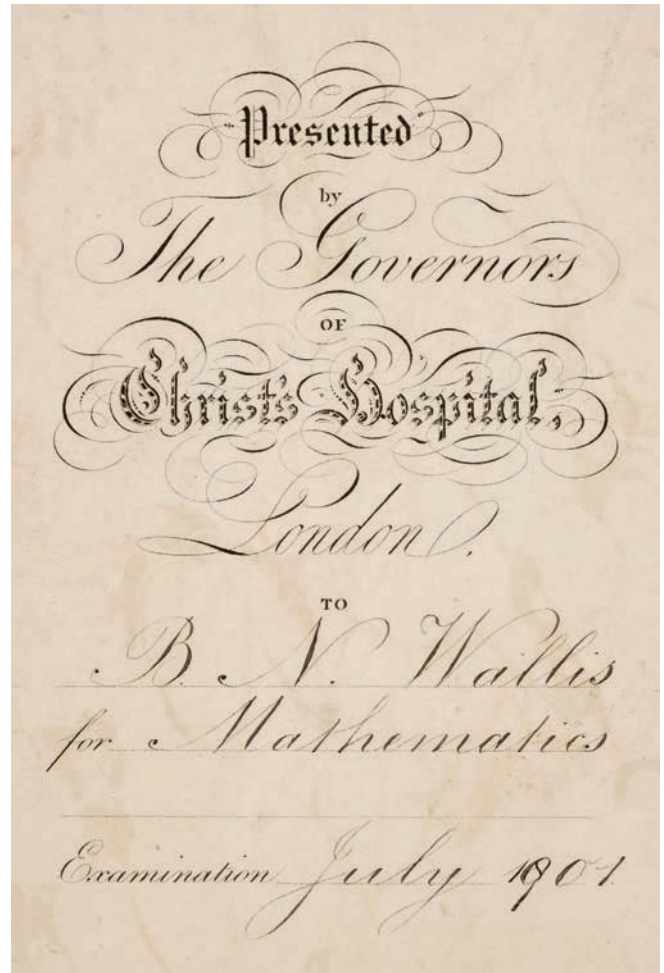 Presented
by
The Governors
OF
Christ's Hospital,
London.
TO
B. N. Wallis
for Mathematics
Examination July 1901.